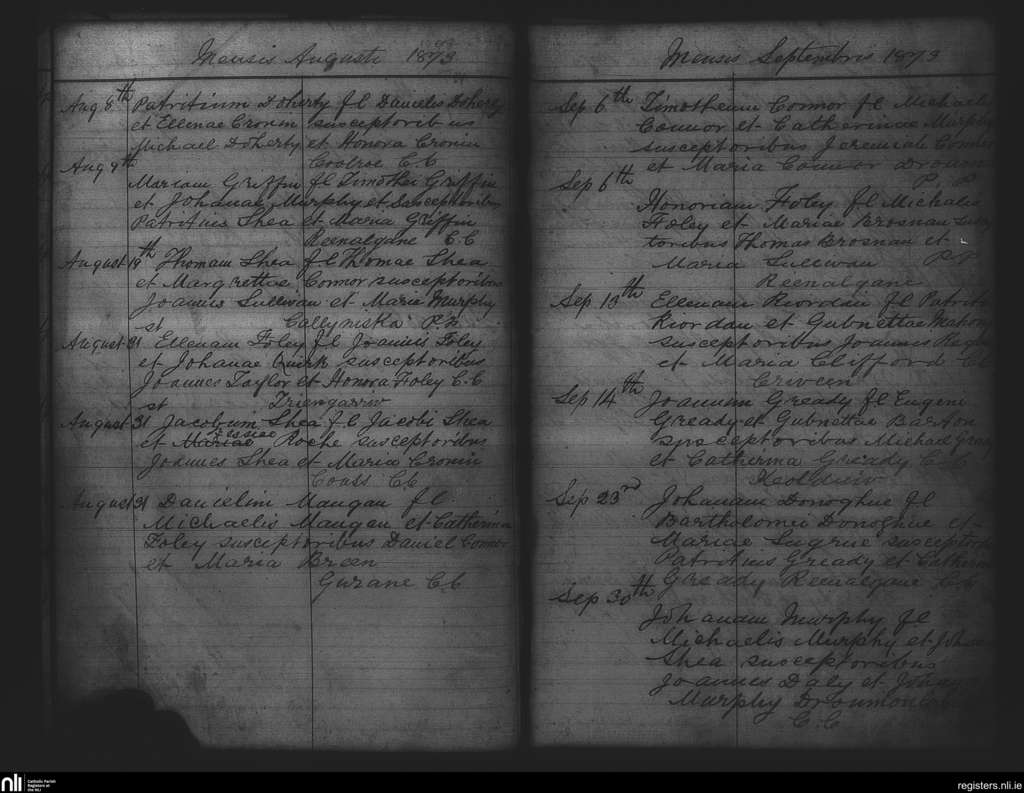 Mensis Augusti 1873
Aug 8th Patritium Doherty fl Danielis Doherty
et Ellenae Cronin susceptoribus
Michael Doherty et Honora Cronin
Coolroe C.C
Aug 9th
Mariam Griffin fl Timothei Griffin
et Johanae Murphy et Susceptoribus
Patritius Shea et Maria Griffin
Reenalgane C.C
August 19th Thomam Shea fl Thomae Shea
et Margrettae Connor susceptoribus
Joannis Sullivan et Maria Murphy
Callyniska P.P.
August 31st Ellenam Foley fl Joannis Foley
et Johanae Quirk susceptoribus
Joannes Taylor et Honora Foley C.C
August 31st Jacobum Shea fl Jacobi Shea
et Mariae Jessiae Roche susceptoribus
Joannes Shea et Maria Cronin
Coass CC
August 31 Danielim Mangan fl
Michaelis Mangan et Catherina
Foley susceptoribus Daniel Connor
et Maria Breen
Gurane C.C
Mensis Septembris 1873
Sep 6th Timotheum Connor fl Michaelis
Connor et Catherinae Murphy
susceptoribus Jeremiah Connor
et Maria Connor
P.P.
Sep 6th
Honoriam Foley fl Michalis
Foley et Mariae Brosnan Suscep
toribus Thomas Brosnan et
Maria Sullivan P.P
Reenalgane
Sep 13th Ellenam Riordan fl Patriti
Riordan et Gubnettae Mahony
susceptoribus Joannes
et Maria Clifford CC
Sep 14th Joannam Gready fl Eugeni
Gready et Gubnettae Barton
susceptoribus Michael Gready
et Catherina Gready C.C
Sep 23rd Johanam Donoghue fl
Bartholomei Donoghue et
Mariae Sugrue susceptoribus
Patritius Gready et Catherina
Gready Reenalgane C.C
Sep 30th
Johanam Murphy fl
Michaelis Murphy et Johanae
Shea susceptoribus
Joannes Daly et Johana
Murphy
C.C.
nli Catholic Parish Registers at the NLI
registers.nli.ie